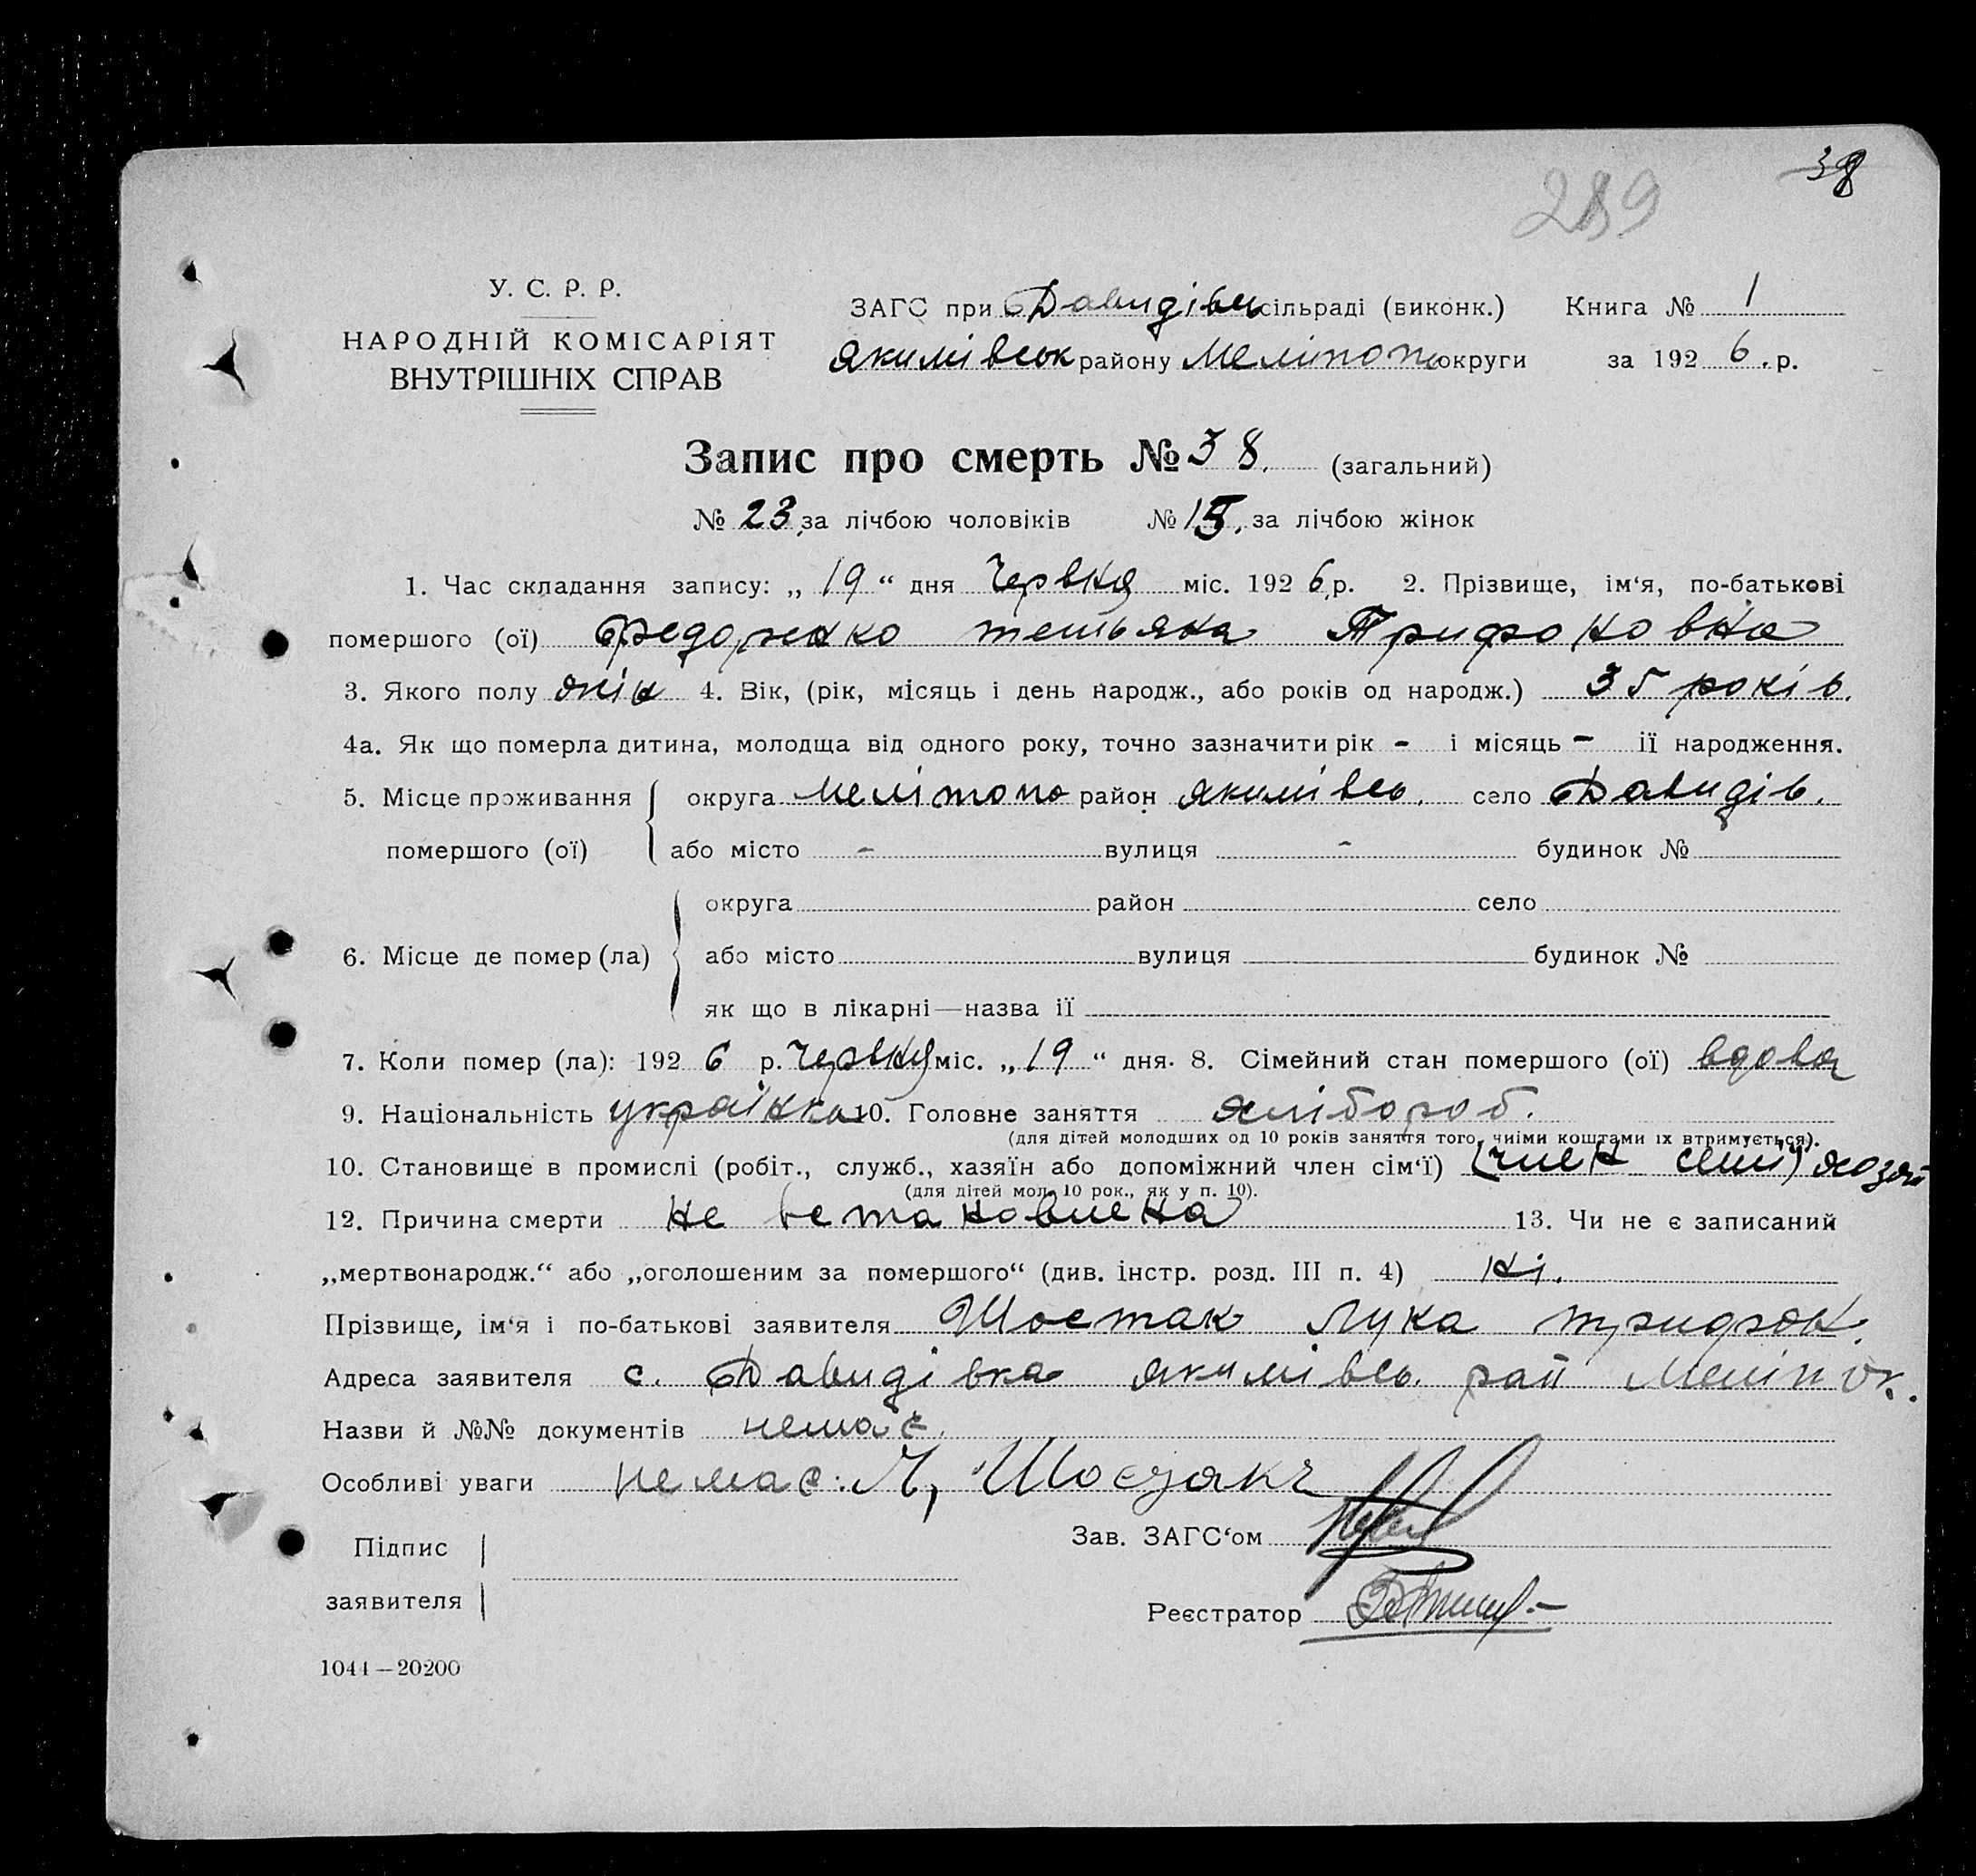 38
289
У. С. Р. Р.
НАРОДНІЙ КОМІСАРІЯТ
ВНУТРІШНІХ СПРАВ
ЗАГС при Давидівк сільраді (виконк.) Книга № 1
Якимівськ району Мелітоп округи за 192 6. р.
Запис про смерть № 38. (загальний)
№ 23. за лічбою чоловіків № 15. за лічбою жінок
1. Час складання запису: „ 19 “ дня Червня міс. 192 6 р. 2. Прізвище, ім‘я, по-батькові
помершого (ої) Федоренко тетьяна Трифоновна
3. Якого полу жін 4. Вік, (рік, місяць і день народж., або років од народж.) 35 років.
4а. Як що померла дитина, молодща від одного року, точно зазначити рік - і місяць - її народження.
5. Місце проживання округа Мелітопо район Якимівсь. село Давидів.
помершого (ої) або місто - вулиця - будинок №
округа район село
6. Місце де помер (ла) або місто вулиця будинок №
як що в лікарні—назва її
7. Коли помер (ла): 192 6 р. Червня міс. „ 19 “ дня. 8. Сімейний стан помершого (ої) вдова
9. Національність українка 10. Головне заняття хлібороб.
(для дітей молодших од 10 років заняття того, чиїми коштами їх втримується).
10. Становище в промислі (робіт., служб., хазяїн або допоміжний член сім‘ї) (член семї)
(для дітей мол. 10 рок., як у п. 10).
12. Причина смерти не встановлена 13. Чи не є записаний
„мертвонародж.“ або „оголошеним за помершого“ (див. інстр. розд. III п. 4) ні.
Прізвище, ім‘я і по-батькові заявителя Шостак Лука трифон.
Адреса заявителя с. Давидівка Якимівсь. рай Меліт ок.
Назви й №№ документів немає.
Особливі уваги немає. Л, Шостакъ
Підпис
заявителя
Зав. ЗАГС‘ом
Реєстратор
1044—20200